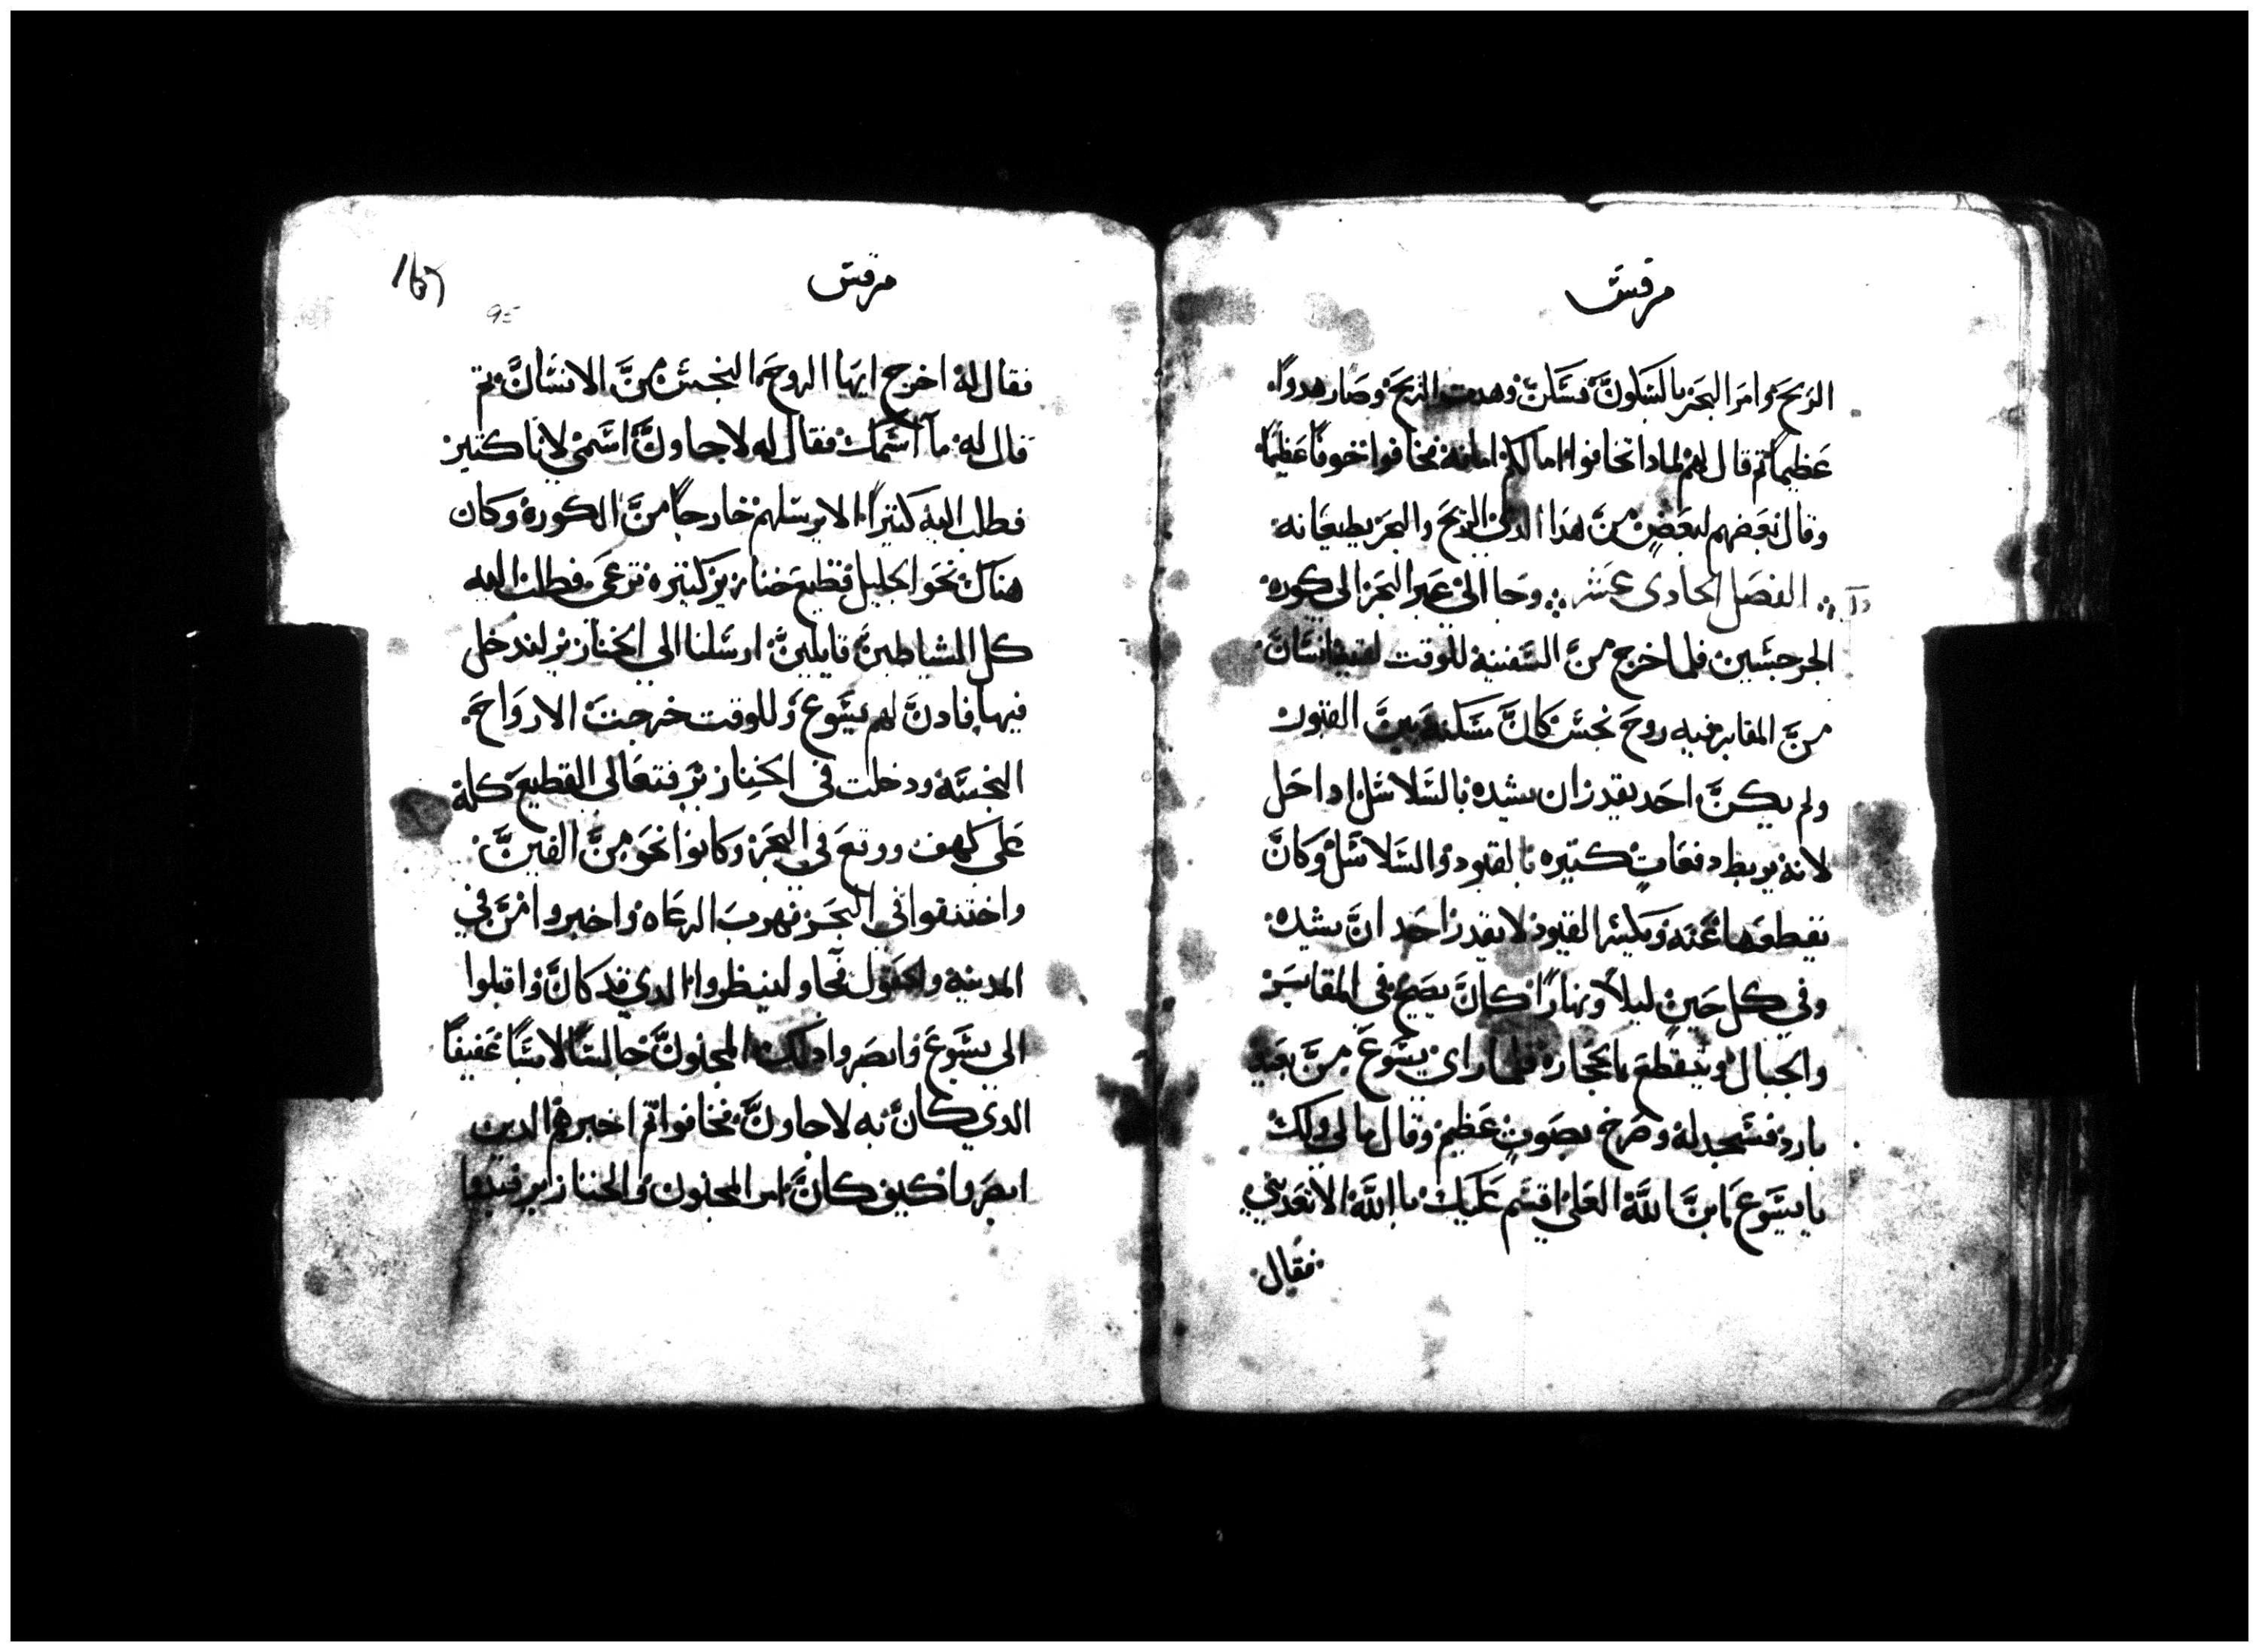 مرقس
الريح وامر البحر بالسكون فسكن وهدت الريح وصار هدوا
عظيما ثم قال لهم لمادا تخافوا اما لكم امانه فخافوا خوفا عظيما
وقال بعضهم لبعض من هدا الدي الريح والبحر يطيعانه
الفصل الحادي عشر وجا الي عبر البحر الي كورة
الجرجسين فلما خرج من السفينة للوقت لقيه انسان
من المقابر فيه روح نجس كان مسكنه بين القبور
ولم يكن احد يقدر ان يشده بالسلاسل اداحل
لانه يربط دفعات كتيره بالقيود والسلاسل وكان
يقطعها عنه ويكسر القيود لا يقدر احد ان يشده
وفي كل حين ليلا ونهارا كان يصيح في المقابر
والجبال ويتقطع بالحجاره فلما راي يسوع من بعيد
بادر فسجد له وصرخ بصوت عظيم وقال ما لي ولك
يا يسوع يا بن الله العلي اقسم عليك بالله الا تعدبني
فقال
مرقس
95
فقال له اخرج ايها الروح النجس من الانسان ثم
قال له ما اسمك فقال له لاجاون اسمي لانا كتير
فطلب اليه كتيرا الا يرسلهم خارجا من الكورة وكان
هناك نحو الجبل قطيع خنازير كتيره ترعي فطلب اليه
كل الشياطين قايلين ارسلنا الي الخنازير لندخل
فيها فادن لهم يسوع وللوقت خرجت الارواح
النجسة ودخلت في الخنازير فتعالي القطيع كله
علي كهف ووقع في البحر وكانوا نحو من الفين
واختنقوا في البحر فهرب الرعاه واخبروا من في
المدينه والحقول فجاو لينظروا الدي قد كان واقبلوا
الي يسوع وابصروا دلك المجنون جالسا لابسا عفيفا
الدي كان به لاجاون فخافوا ثم اخبرهم الدين
ابصروا كيف كان امر المجنون والخنازير فبدوا